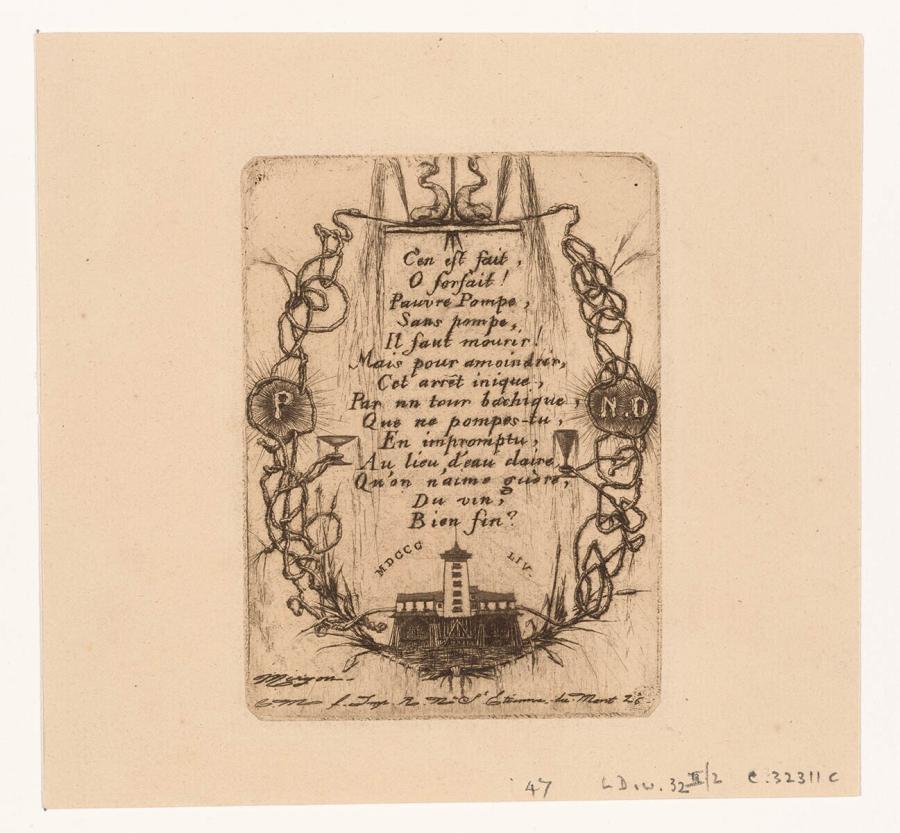 C'en est fait,
O forfait!
Pauvre Pompe,
Sans pompe,
Il faut mourir!
Mais pour amoindrir,
Cet arrêt inique,
Par un tour bachique,
Que ne pompes-tu,
En impromptu,
Au lieu d'eau claire,
Qu'on n'aime guère,
Du vin,
Bien fin?
P
N.D
MDCCC LIV.
Meryon
C M f. Imp. R. N. St Etienne du Mont 26.
47 L.D.W. 32 II/2 C.32311 C